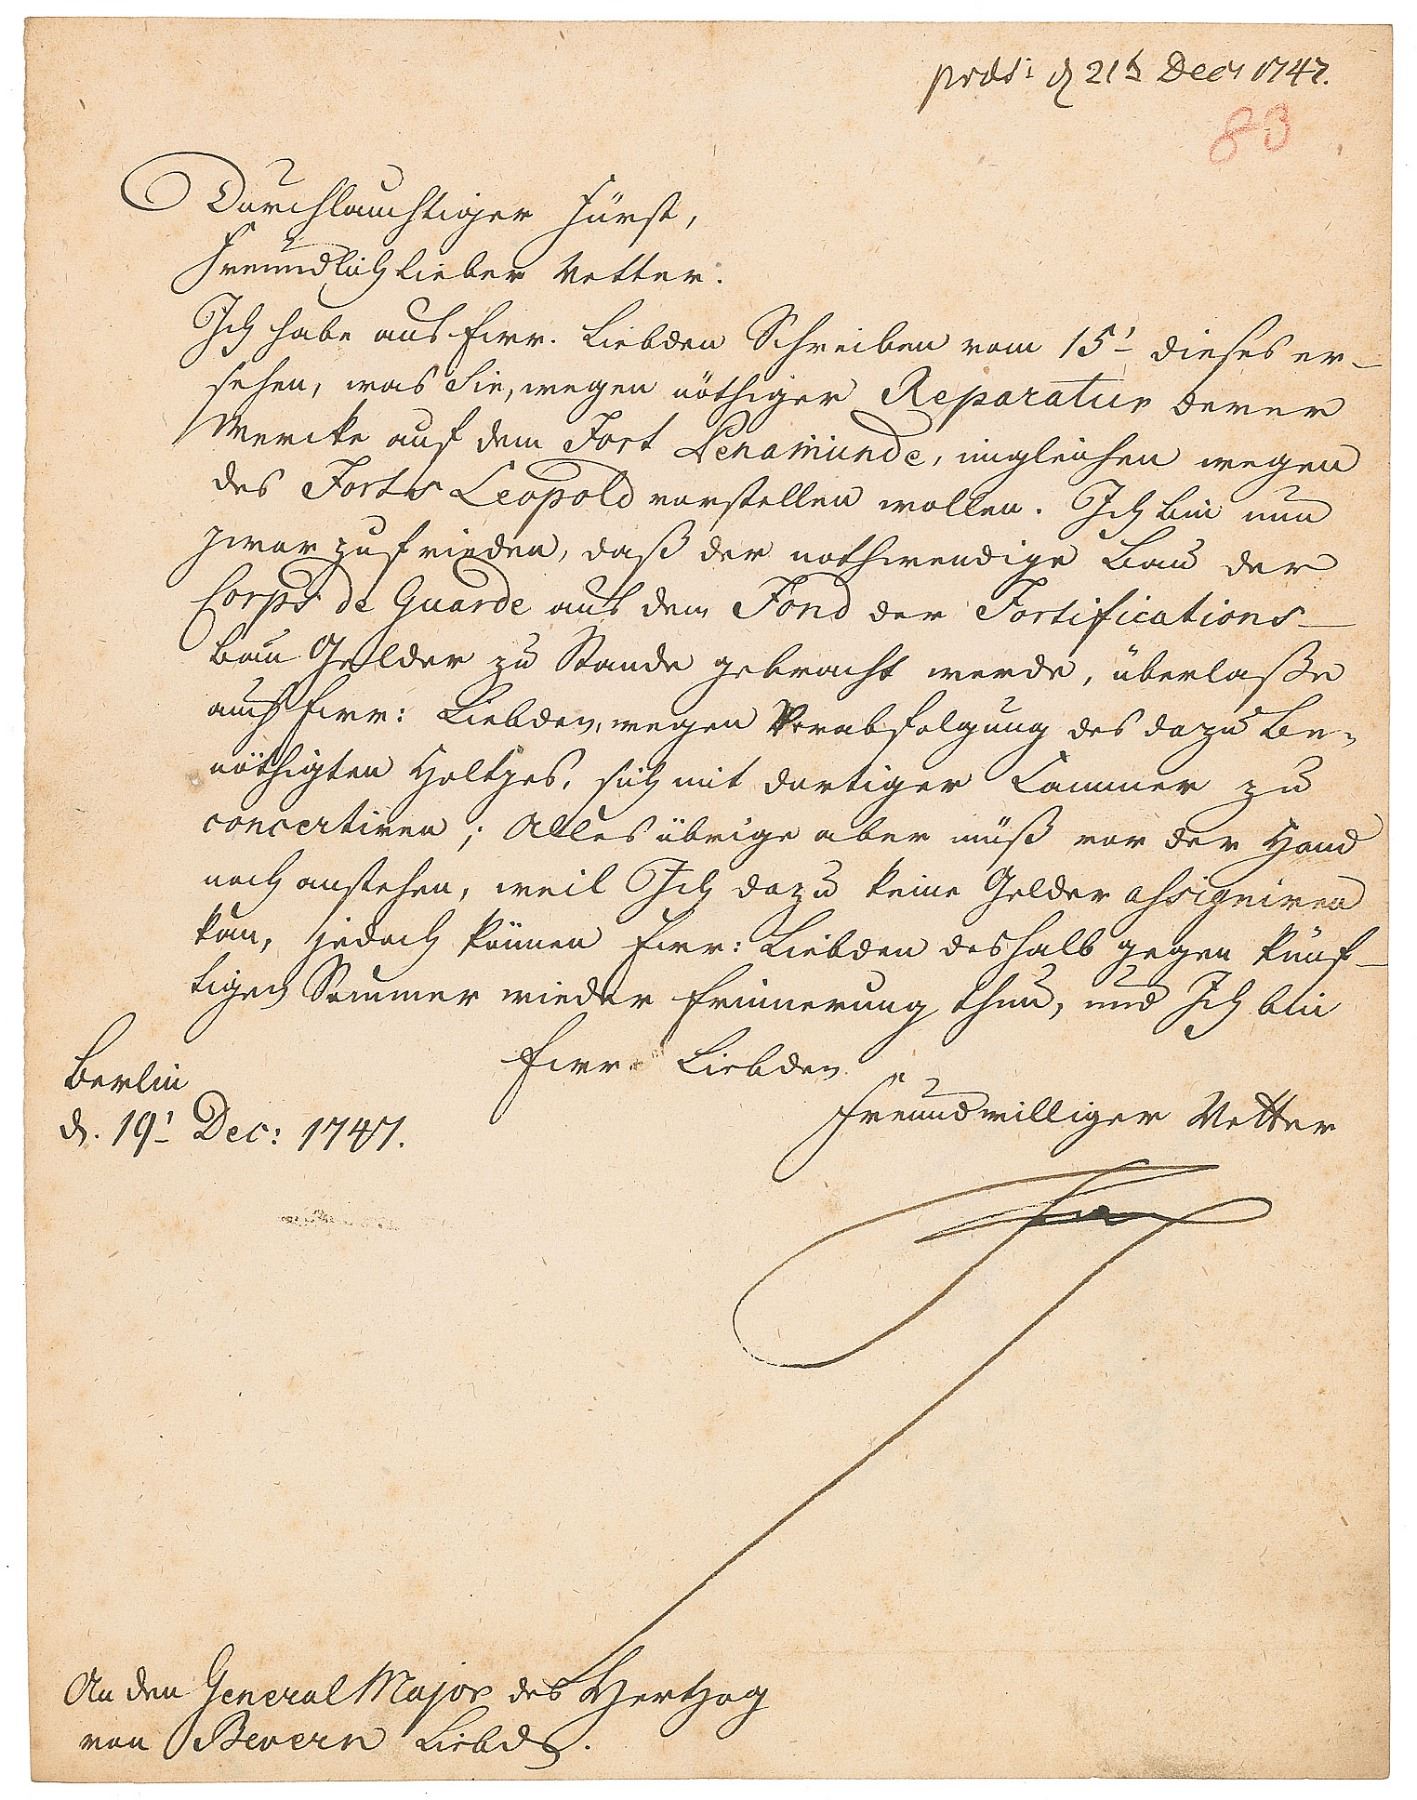 praes: d 21t Decr 1747.
83
Durchlauchtiger Fürst,
Freundlich lieber Vetter.
Ich habe aus Ewr. Liebden Schreiben vom 15t dieses er-
sehen, was Sie, wegen nöthiger Reparatur derer
Wercke auf dem Fort Penamünde, imgleichen wegen
des Forts Leopold vorstellen wollen. Ich bin nun
zwar zufrieden, daß der nothwendige Bau der
Corps de Guarde aus dem Fond der Fortifications-
bau Gelder zu Stande gebracht werde, überlaße
auch Ewr: Liebden, wegen Verabfolgung des dazu be-
nöthigten Holtzes, sich mit dortiger Cammer zu
concertiren; Alles übrige aber müß vor der Hand
noch anstehen, weil Ich dazu keine Gelder assigniren
kan, jedoch können Ewr: Liebden deshalb gegen künf-
tigen Sommer wieder Erinnerung thun, und Ich bin
Ewr. Liebden
Berlin
freundwilliger Vetter
d. 19t Dec: 1747.
Fr
An den General Major des Hertzog
von Bevern Liebd.